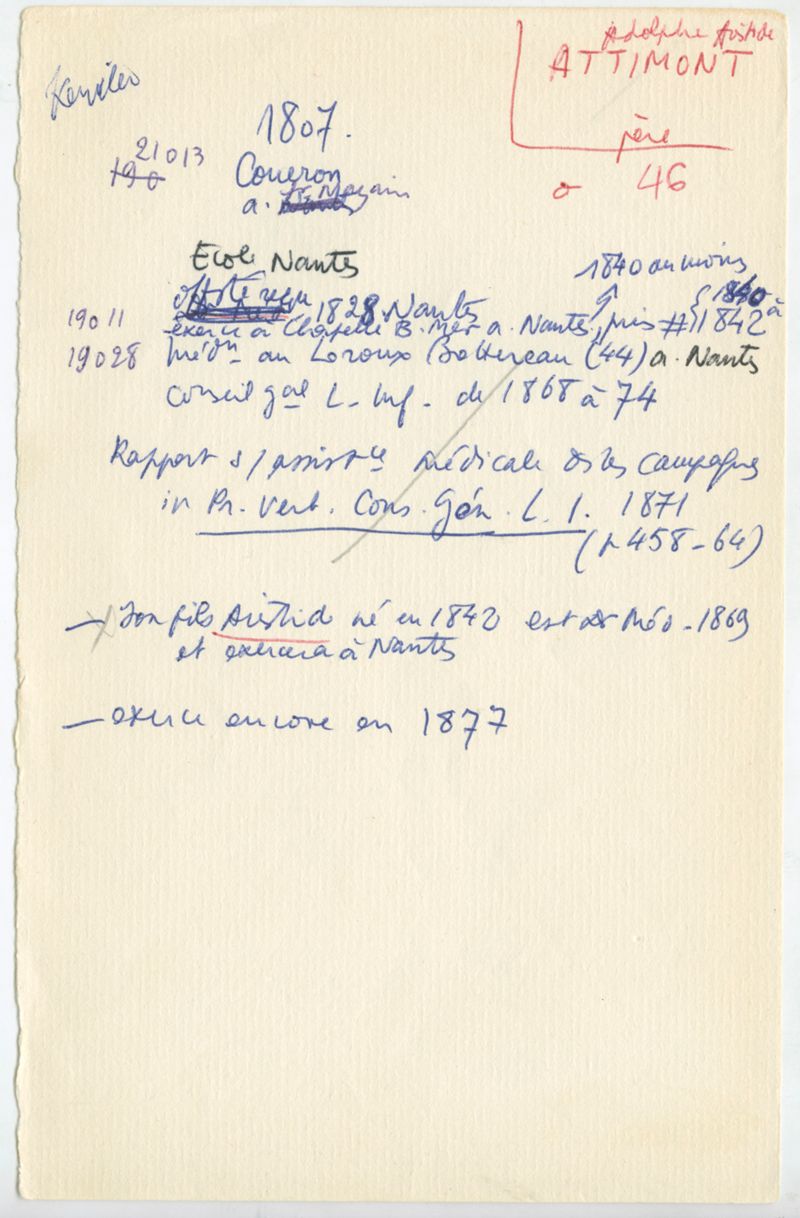 Adolphe Aristide
ATTIMONT
père
46
Kerviler
1807.
21013
190
Coueron
a. St Nazaire
Ecole Nantes
1840 au moins
off. sté reçu 1828. Nantes
1840
19011
exerce à Chapelle B. Mer a. Nantes, puis # 1842 à
19028 Méd^n au Loroux Bottereau (44) a. Nantes
Conseil g^al L. Inf. de 1868 à 74
Rapport s/ assist^ce médicale ds les campagnes
in Pr. Verb. Cons. Gén. L. I. 1871
(p 458-64)
— Son fils Aristid né en 1842 est Dr Méd - 1869
et exercera à Nantes
— exerce encore en 1877